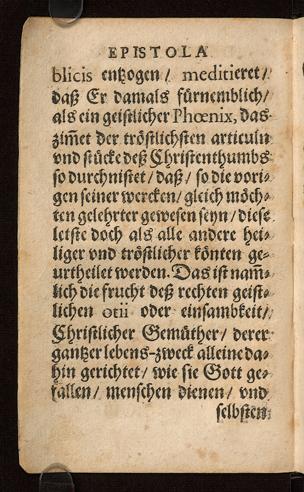 EPISTOLA
blicis entzogen / meditieret /
daß Er damals fürnemblich /
als ein geistlicher Phœnix, das
zim̃et der tröstlichsten articuln
vnd stücke deß Christenthumbs
so durchnistet / daß / so die vori-
gen seiner wercken / gleich möch-
ten gelehrter gewesen seyn / diese
letste doch als alle andere hei-
liger vnd tröstlicher könten ge-
urtheilet werden. Das ist nam̃-
lich die frucht deß rechten geist-
lichen otii oder einsambkeit /
Christlicher Gemüther / derer
gantzer lebens-zweck alleine da-
hin gerichtet / wie sie Gott ge-
fallen / menschen dienen / vnd
selbsten